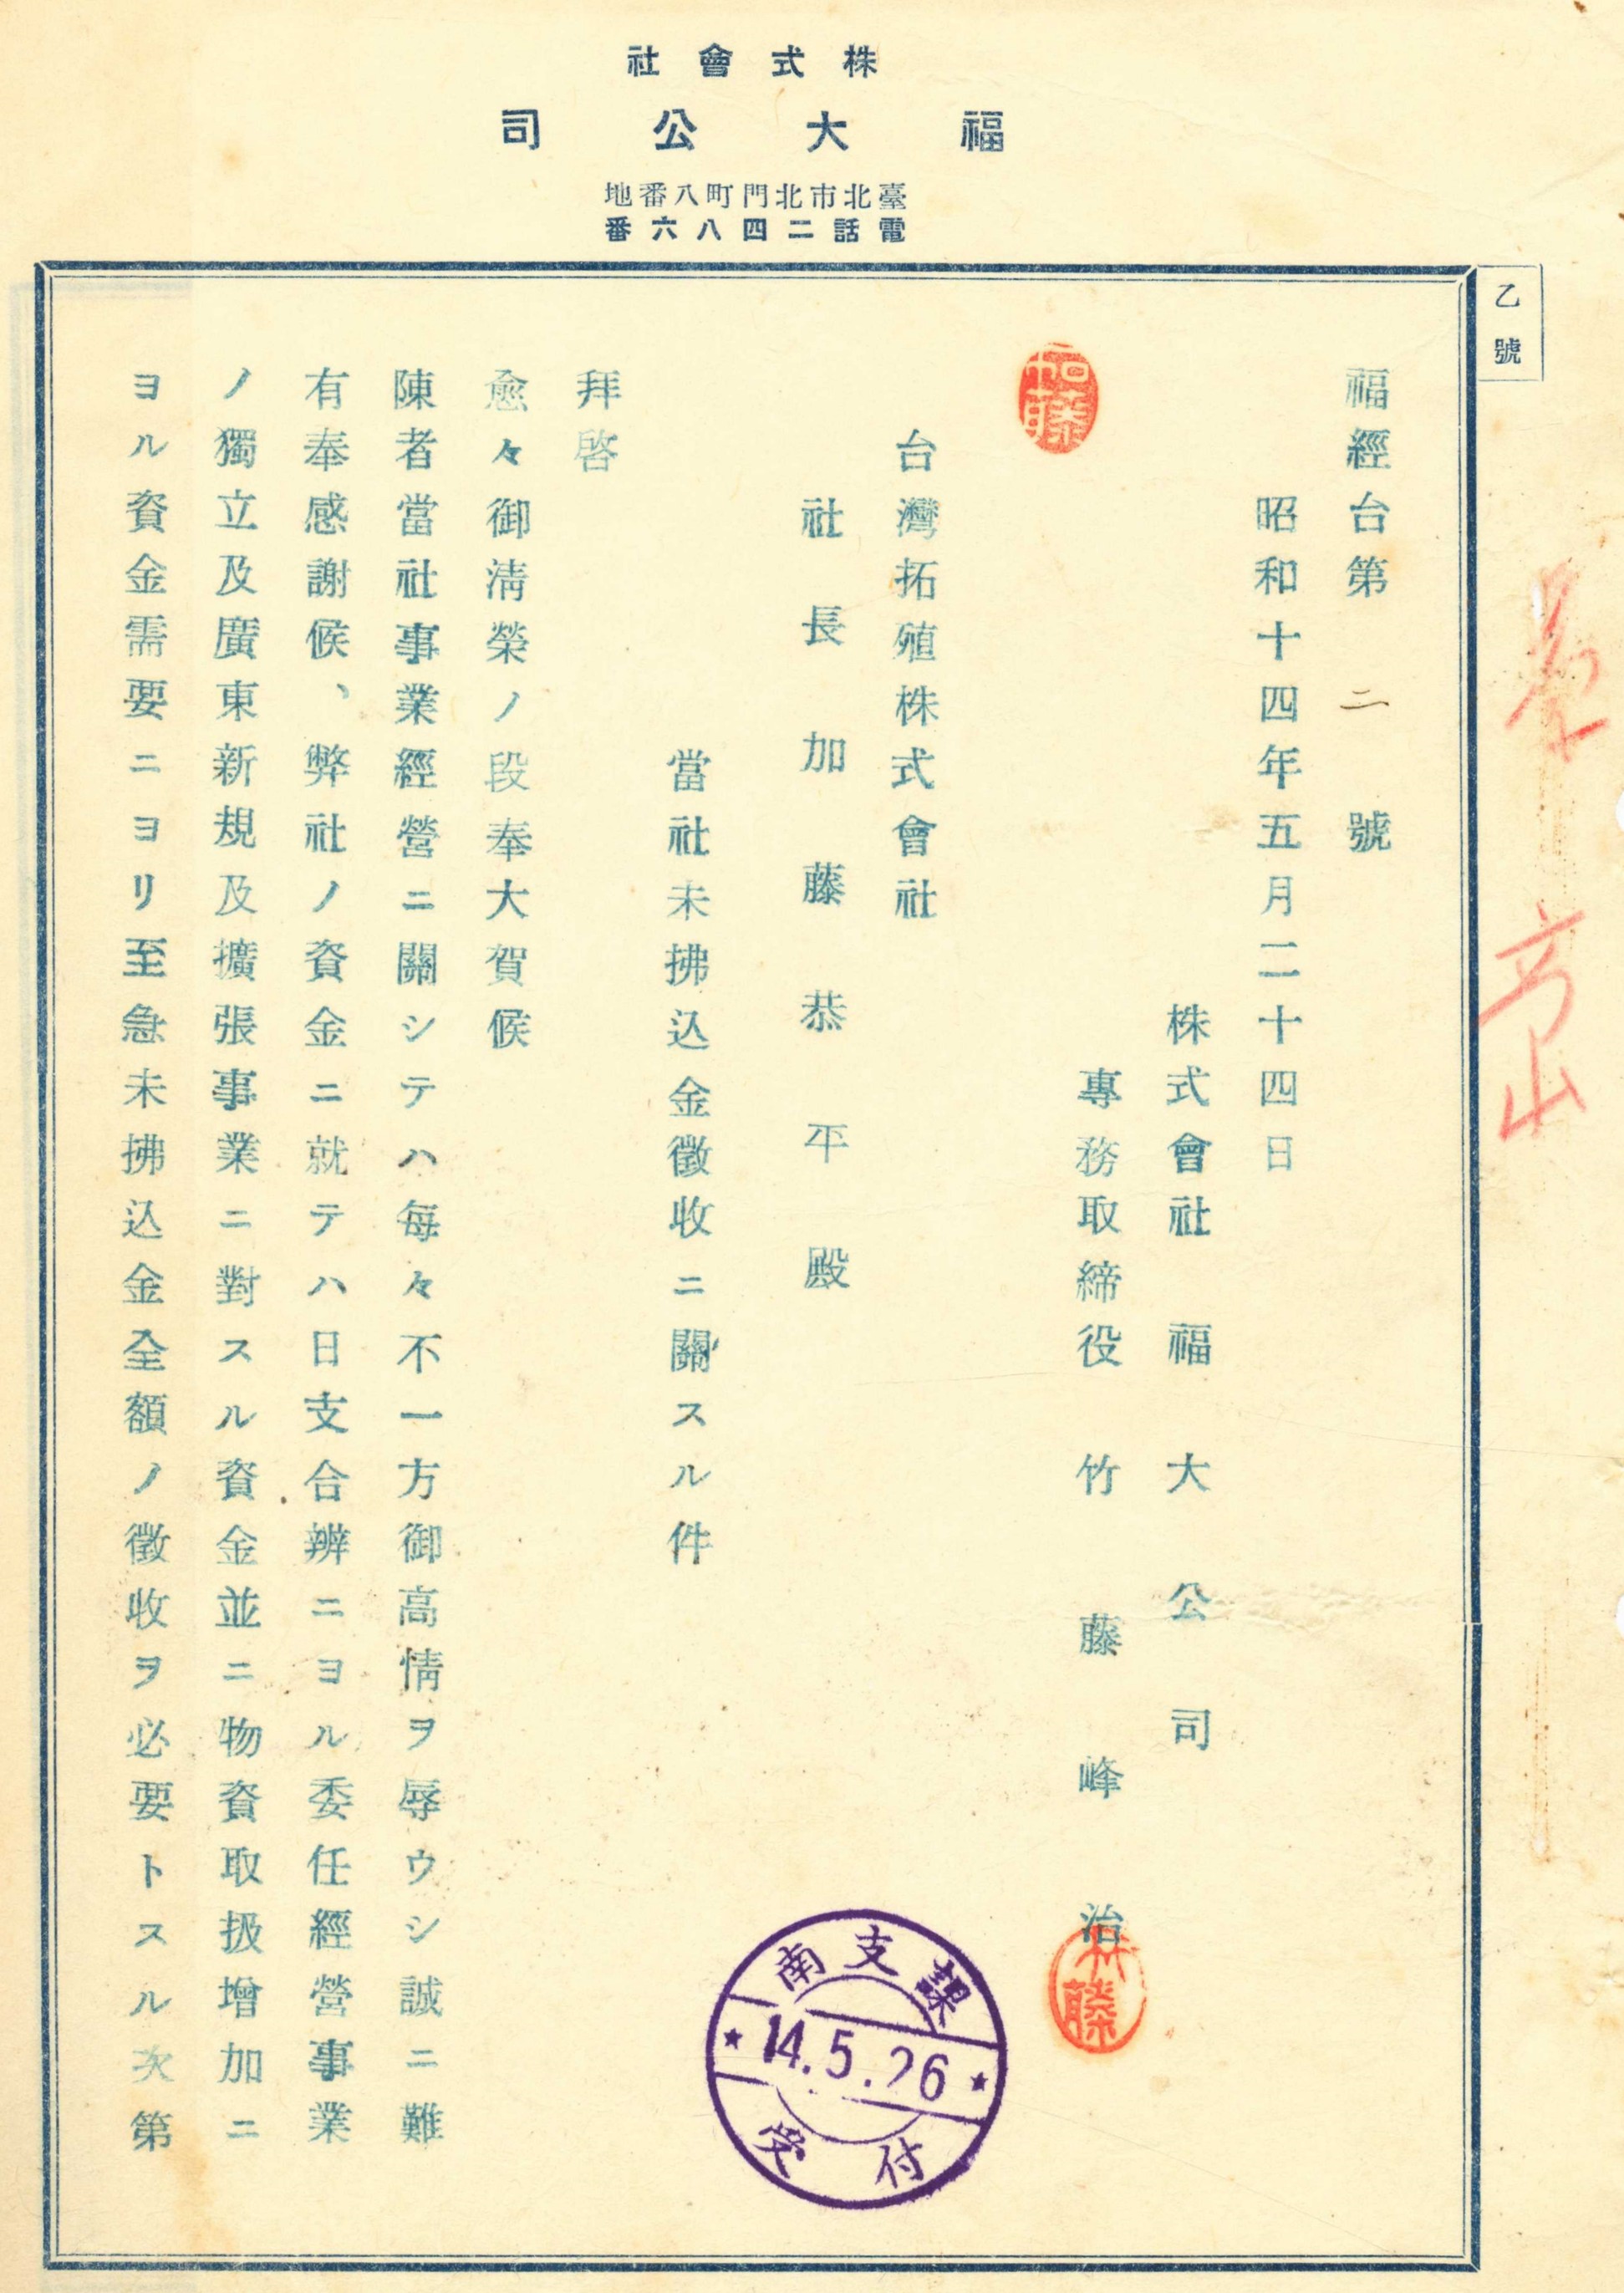 株式會社
福大公司
臺北市北門町八番地
電話二四八六番
乙號
福經台第二號
昭和十四年五月二十四日
株式會社福大公司
專務取締役竹藤峰治
台灣拓殖株式會社
社長加藤恭平殿
當社未拂込金徵收ニ關スル件
拜啓
愈々御淸榮ノ段奉大賀候
陳者當社事業經營ニ關シテハ每々不一方御高情ヲ辱ウシ誠ニ難
有奉感謝候、弊社ノ資金ニ就テハ日支合辨ニヨル委任經營事業
ノ獨立及廣東新規及擴張事業ニ對スル資金並ニ物資取扱增加ニ
ヨル資金需要ニヨリ至急未拂込金全額ノ徵收ヲ必要トスル次第
南支課
14.5.26
受付